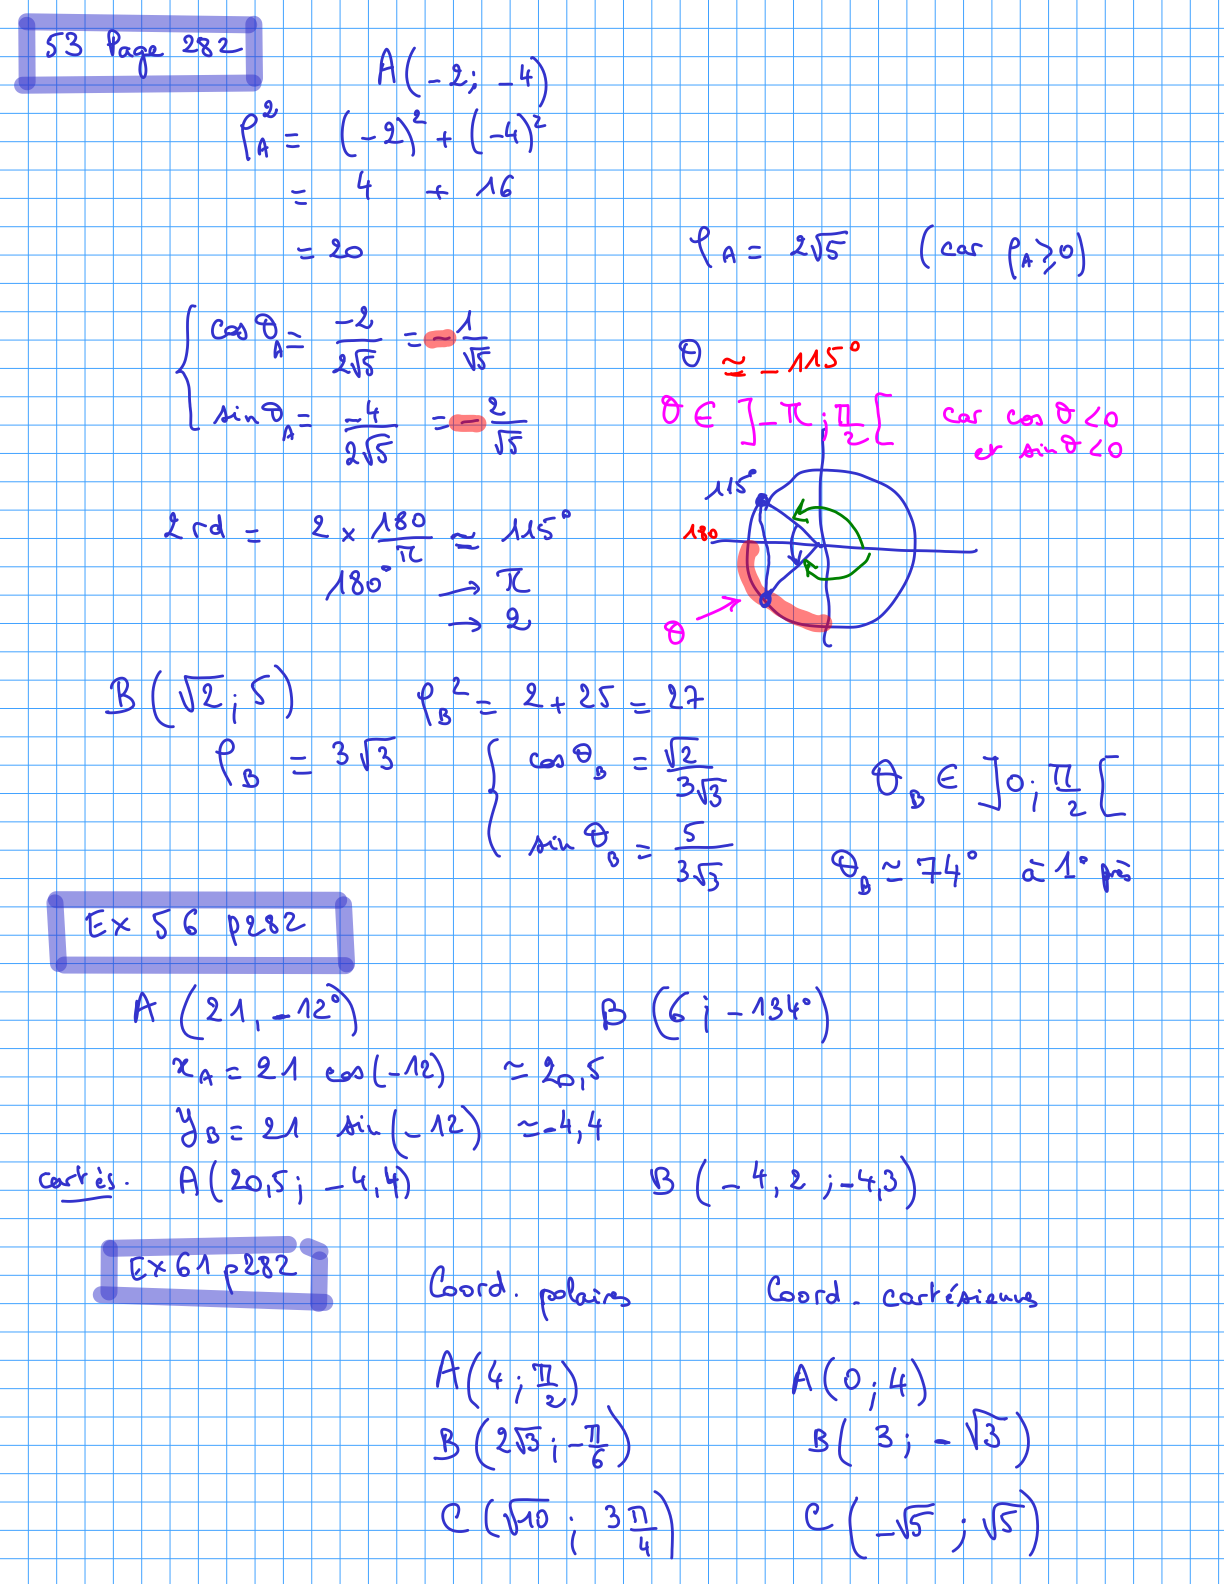 53 Page 282
A(-2; -4)
ρ_A² = (-2)² + (-4)²
= 4 + 16
= 20
ρ_A = 2√5 (car ρ_A ⩾ 0)
cos θ_A = -2/2√5 = -1/√5
θ ≃ -115°
sin θ_A = -4/2√5 = -2/√5
θ ∈ ]-π; π/2[ car cos θ < 0
et sin θ < 0
115°
180
2 rd = 2 × 180/π ≃ 115°
180° → π
→ 2
θ
B(√2; 5) ρ_B² = 2 + 25 = 27
ρ_B = 3√3
cos θ_B = √2/3√3
θ_B ∈ ]0; π/2[
sin θ_B = 5/3√3
θ_B ≃ 74° à 1° près
Ex 56 p282
A (21, -12°) B (6; -134°)
x_A = 21 cos(-12) ≃ 20,5
y_B = 21 sin(-12) ≃ -4,4
cartés. A(20,5; -4,4) B(-4,2; -4,3)
Ex 61 p282
Coord. polaires Coord. cartésiennes
A(4; π/2) A(0; 4)
B(2√3; -π/6) B(3; -√3)
C(√10; 3π/4) C(-√5; √5)